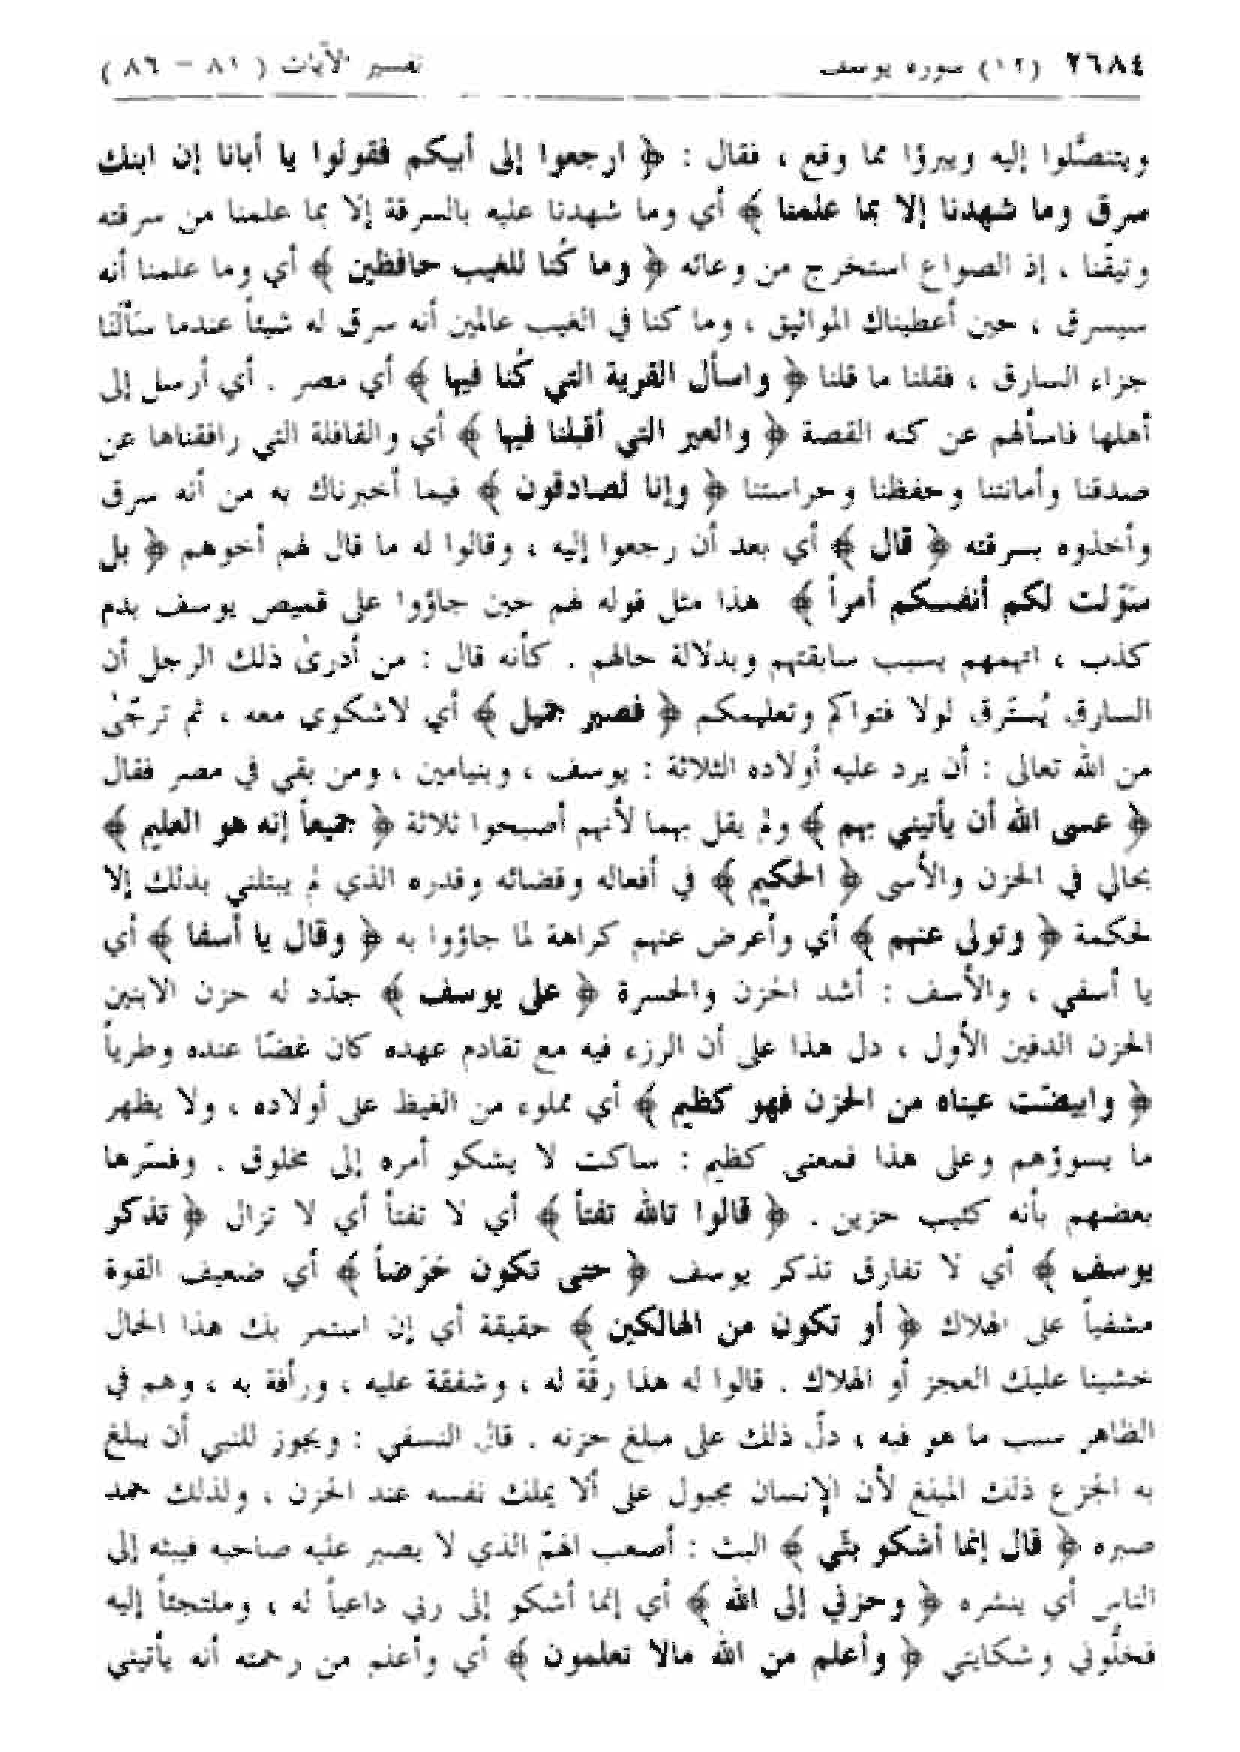 ٢٦٨٤ (١٢) سورة يوسف تفسير الآيات ( ٨١ - ٨٦ )
ويتنصَّلوا إليه ويبرؤا مما وقع ، فقال : ﴿ ارجعوا إلى أبيكم فقولوا يا أبانا إن ابنك
سرق وما شهدنا إلا بما علمنا ﴾ أي وما شهدنا عليه بالسرقة إلا بما علمنا من سرقته
وتيقَّنا ، إذ الصواع استخرج من وعائه ﴿ وما كُنا للغيب حافظين ﴾ أي وما علمنا أنه
سيسرق ، حين أعطيناك المواثيق ، وما كنا في الغيب عالمين أنه سرق له شيئاً عندما سَأَلَنَا
جزاء السارق ، فقلنا ما قلنا ﴿ واسأل القرية التي كُنا فيها ﴾ أي مصر . أي أرسل إلى
أهلها فاسألهم عن كنه القصة ﴿ والعير التي أقبلنا فيها ﴾ أي والقافلة التي رافقناها عن
صدقنا وأمانتنا وحفظنا وحراستنا ﴿ وإنا لصادقون ﴾ فيما أخبرناك به من أنه سرق
وأخذوه بسرقته ﴿ قال ﴾ أي بعد أن رجعوا إليه ، وقالوا له ما قال لهم أخوهم ﴿ بل
سَوّلت لكم أنفسكم أمراً ﴾ هذا مثل قوله لهم حين جاؤوا على قميص يوسف بدم
كذب ، اتهمهم بسبب سابقتهم وبدلالة حالهم . كأنه قال : من أدرىٰ ذلك الرجل أن
السارق يُسترق لولا فتواكم وتعليمكم ﴿ فصبر جميل ﴾ أي لاشكوي معه ، ثم ترجّىٰ
من الله تعالى : أن يرد عليه أولاده الثلاثة : يوسف ، وبنيامين ، ومن بقي في مصر فقال
﴿ عسى الله أن يأتيني بهم ﴾ ولم يقل بهما لأنهم أصبحوا ثلاثة ﴿ جميعاً إنه هو العليم ﴾
بحالي في الحزن والأسى ﴿ الحكيم ﴾ في أفعاله وقضائه وقدره الذي لم يبتلني بذلك إلا
لحكمة ﴿ وتولى عنهم ﴾ أي وأعرض عنهم كراهة لما جاؤوا به ﴿ وقال يا أسفا ﴾ أي
يا أسفي ، والأسف : أشد الحزن والحسرة ﴿ على يوسف ﴾ جدّد له حزن الابنين
الحزن الدفين الأول ، دل هذا على أن الرزء فيه مع تقادم عهده كان غضّا عنده وطرياً
﴿ وابيضّت عيناه من الحزن فهو كظيم ﴾ أي مملوء من الغيظ على أولاده ، ولا يظهر
ما يسوؤهم وعلى هذا فمعنى كظيم : ساكت لا يشكو أمره إلى مخلوق . وفسّرها
بعضهم بأنه كئيب حزين . ﴿ قالوا تالله تفتأ ﴾ أي لا تفتأ أي لا تزال ﴿ تذكر
يوسف ﴾ أي لا تفارق تذكر يوسف ﴿ حتى تكون حَرَضاً ﴾ أي ضعيف القوة
مشفياً على الهلاك ﴿ أو تكون من الهالكين ﴾ حقيقة أي إن استمر بك هذا الحال
خشينا عليك العجز أو الهلاك . قالوا له هذا رقَّة له ، وشفقة عليه ، ورأفة به ، وهم في
الظاهر سبب ما هو فيه ، دلّ ذلك على مبلغ حزنه . قال النسفي : ويجوز للنبي أن يبلغ
به الجزع ذلك المبلغ لأن الإنسان مجبول على ألا يملك نفسه عند الحزن ، ولذلك حمد
صبره ﴿ قال إنما أشكو بثّي ﴾ البث : أصعب الهمّ الذي لا يصبر عليه صاحبه فيبثه إلى
الناس أي ينشره ﴿ وحزني إلى الله ﴾ أي إنما أشكو إلى ربي داعياً له ، وملتجئاً إليه
فخلُّوني وشكايتي ﴿ وأعلم من الله مالا تعلمون ﴾ أي وأعلم من رحمته أنه يأتيني